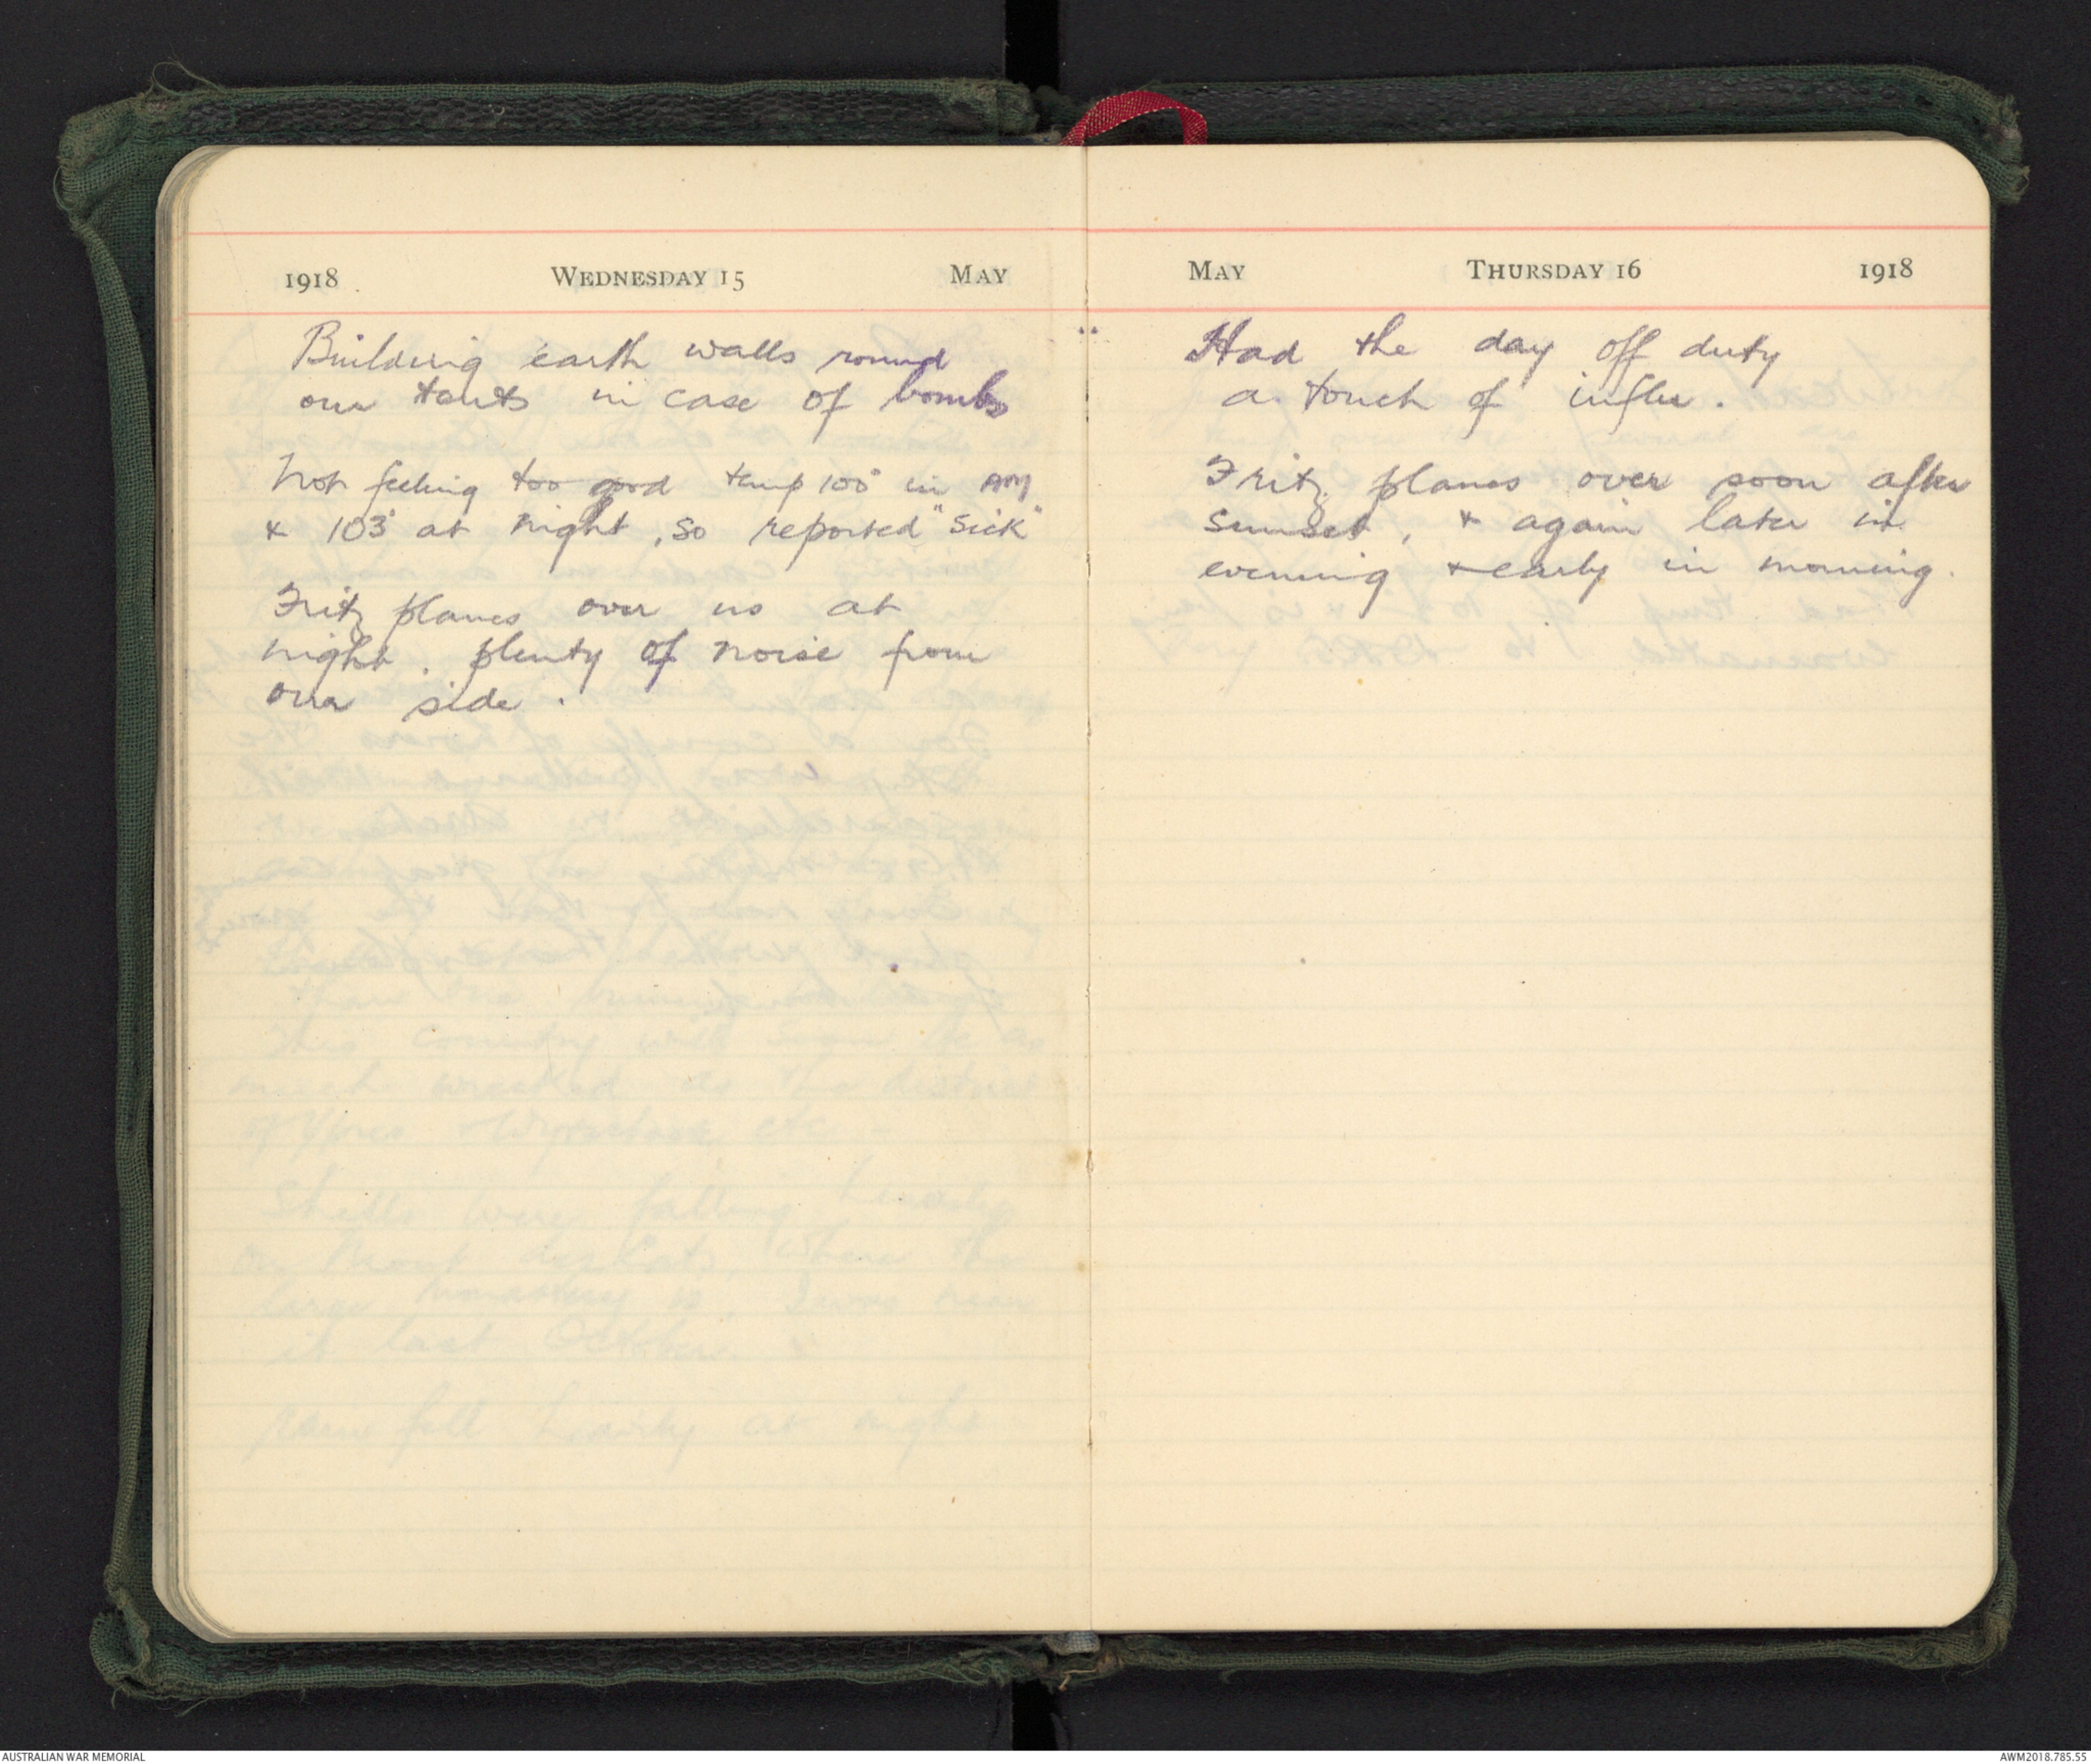 1918 WEDNESDAY 15 MAY
Building earth walls round
our tents in case of bombs
Not feeling too good temp 100° in AM
& 103° at night, so reported "Sick"
Fritz planes over us at
night. plenty of noise from
our side.
MAY THURSDAY 16 1918
Had the day off duty
a touch of influ.
Fritz planes over soon after
sunset, & again later in
evening & early in morning.
AUSTRALIAN WAR MEMORIAL
AWM2018.785.55